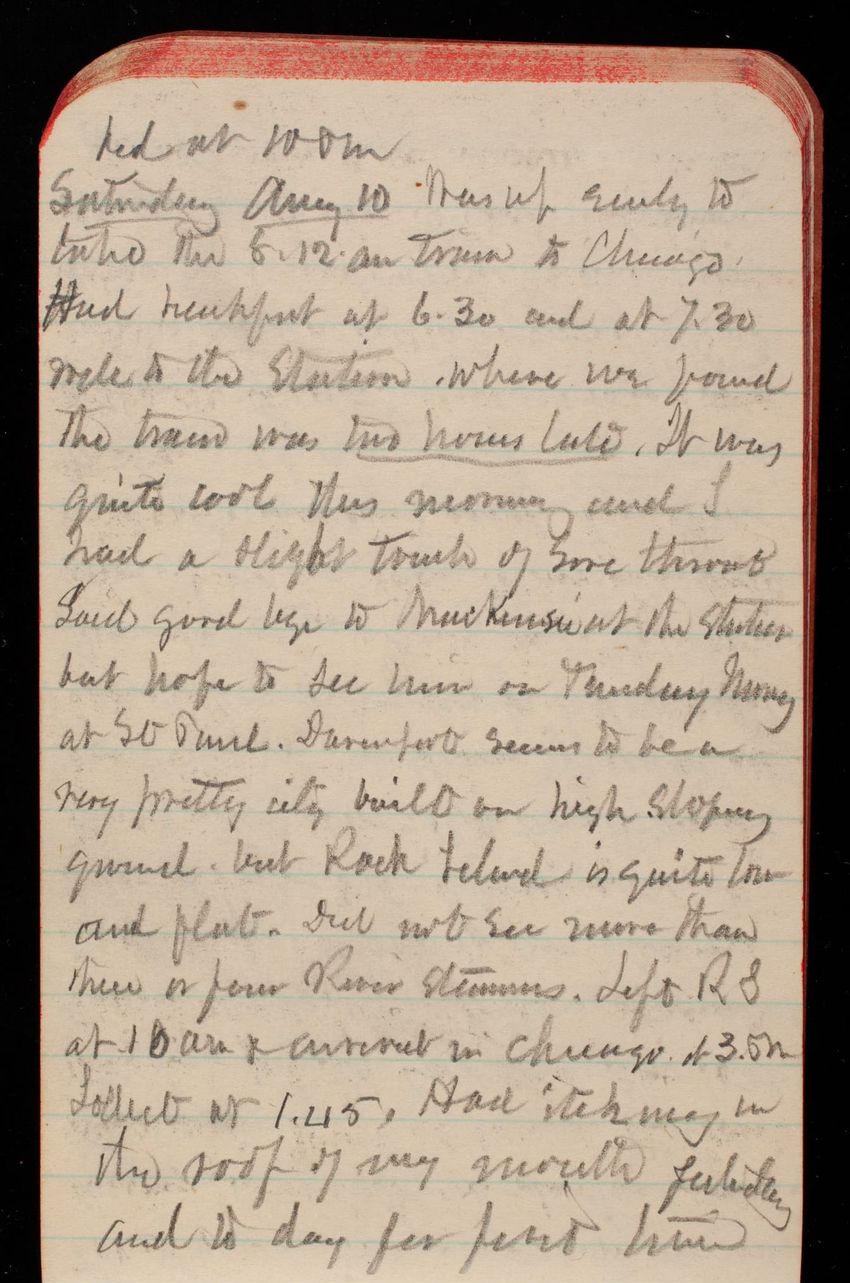 bed at 10 pm
Saturday Aug 10 Was up early to
take the 8.12 am train to Chicago.
Had breakfast at 6.30 and at 7.30
rode to the Station where we found
the train was two hours late. It was
quite cool this morning and I
had a slight touch of sore throat
Said good bye to MacKensie at the Station
but hope to see him on Tuesday Morng
at St Paul. Davenport seems to be a
very pretty city built on high sloping
ground but Rock Island is quite low
and flat. Did not see more than
three or four River Steamers. Left R I
at 10 am & arrived in Chicago at 3. Pm
at 1.45. Had itching in
the roof of my mouth yesterday
and to day for first time